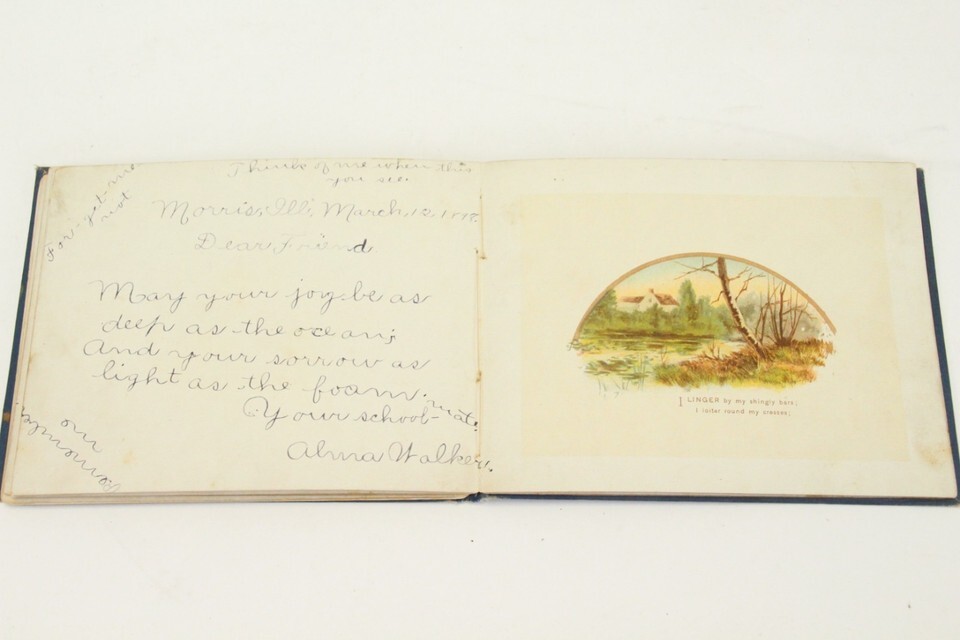 For-get-me
not
Think of me when this
you see.
Morris, Ill, March, 12, 
Dear Friend
May your joy be as
deep as the ocean;
And your sorrow as
light as the foam.
Your school-mate.
Alma Walker.
me
I LINGER by my shingly bars;
I loiter round my cresses;